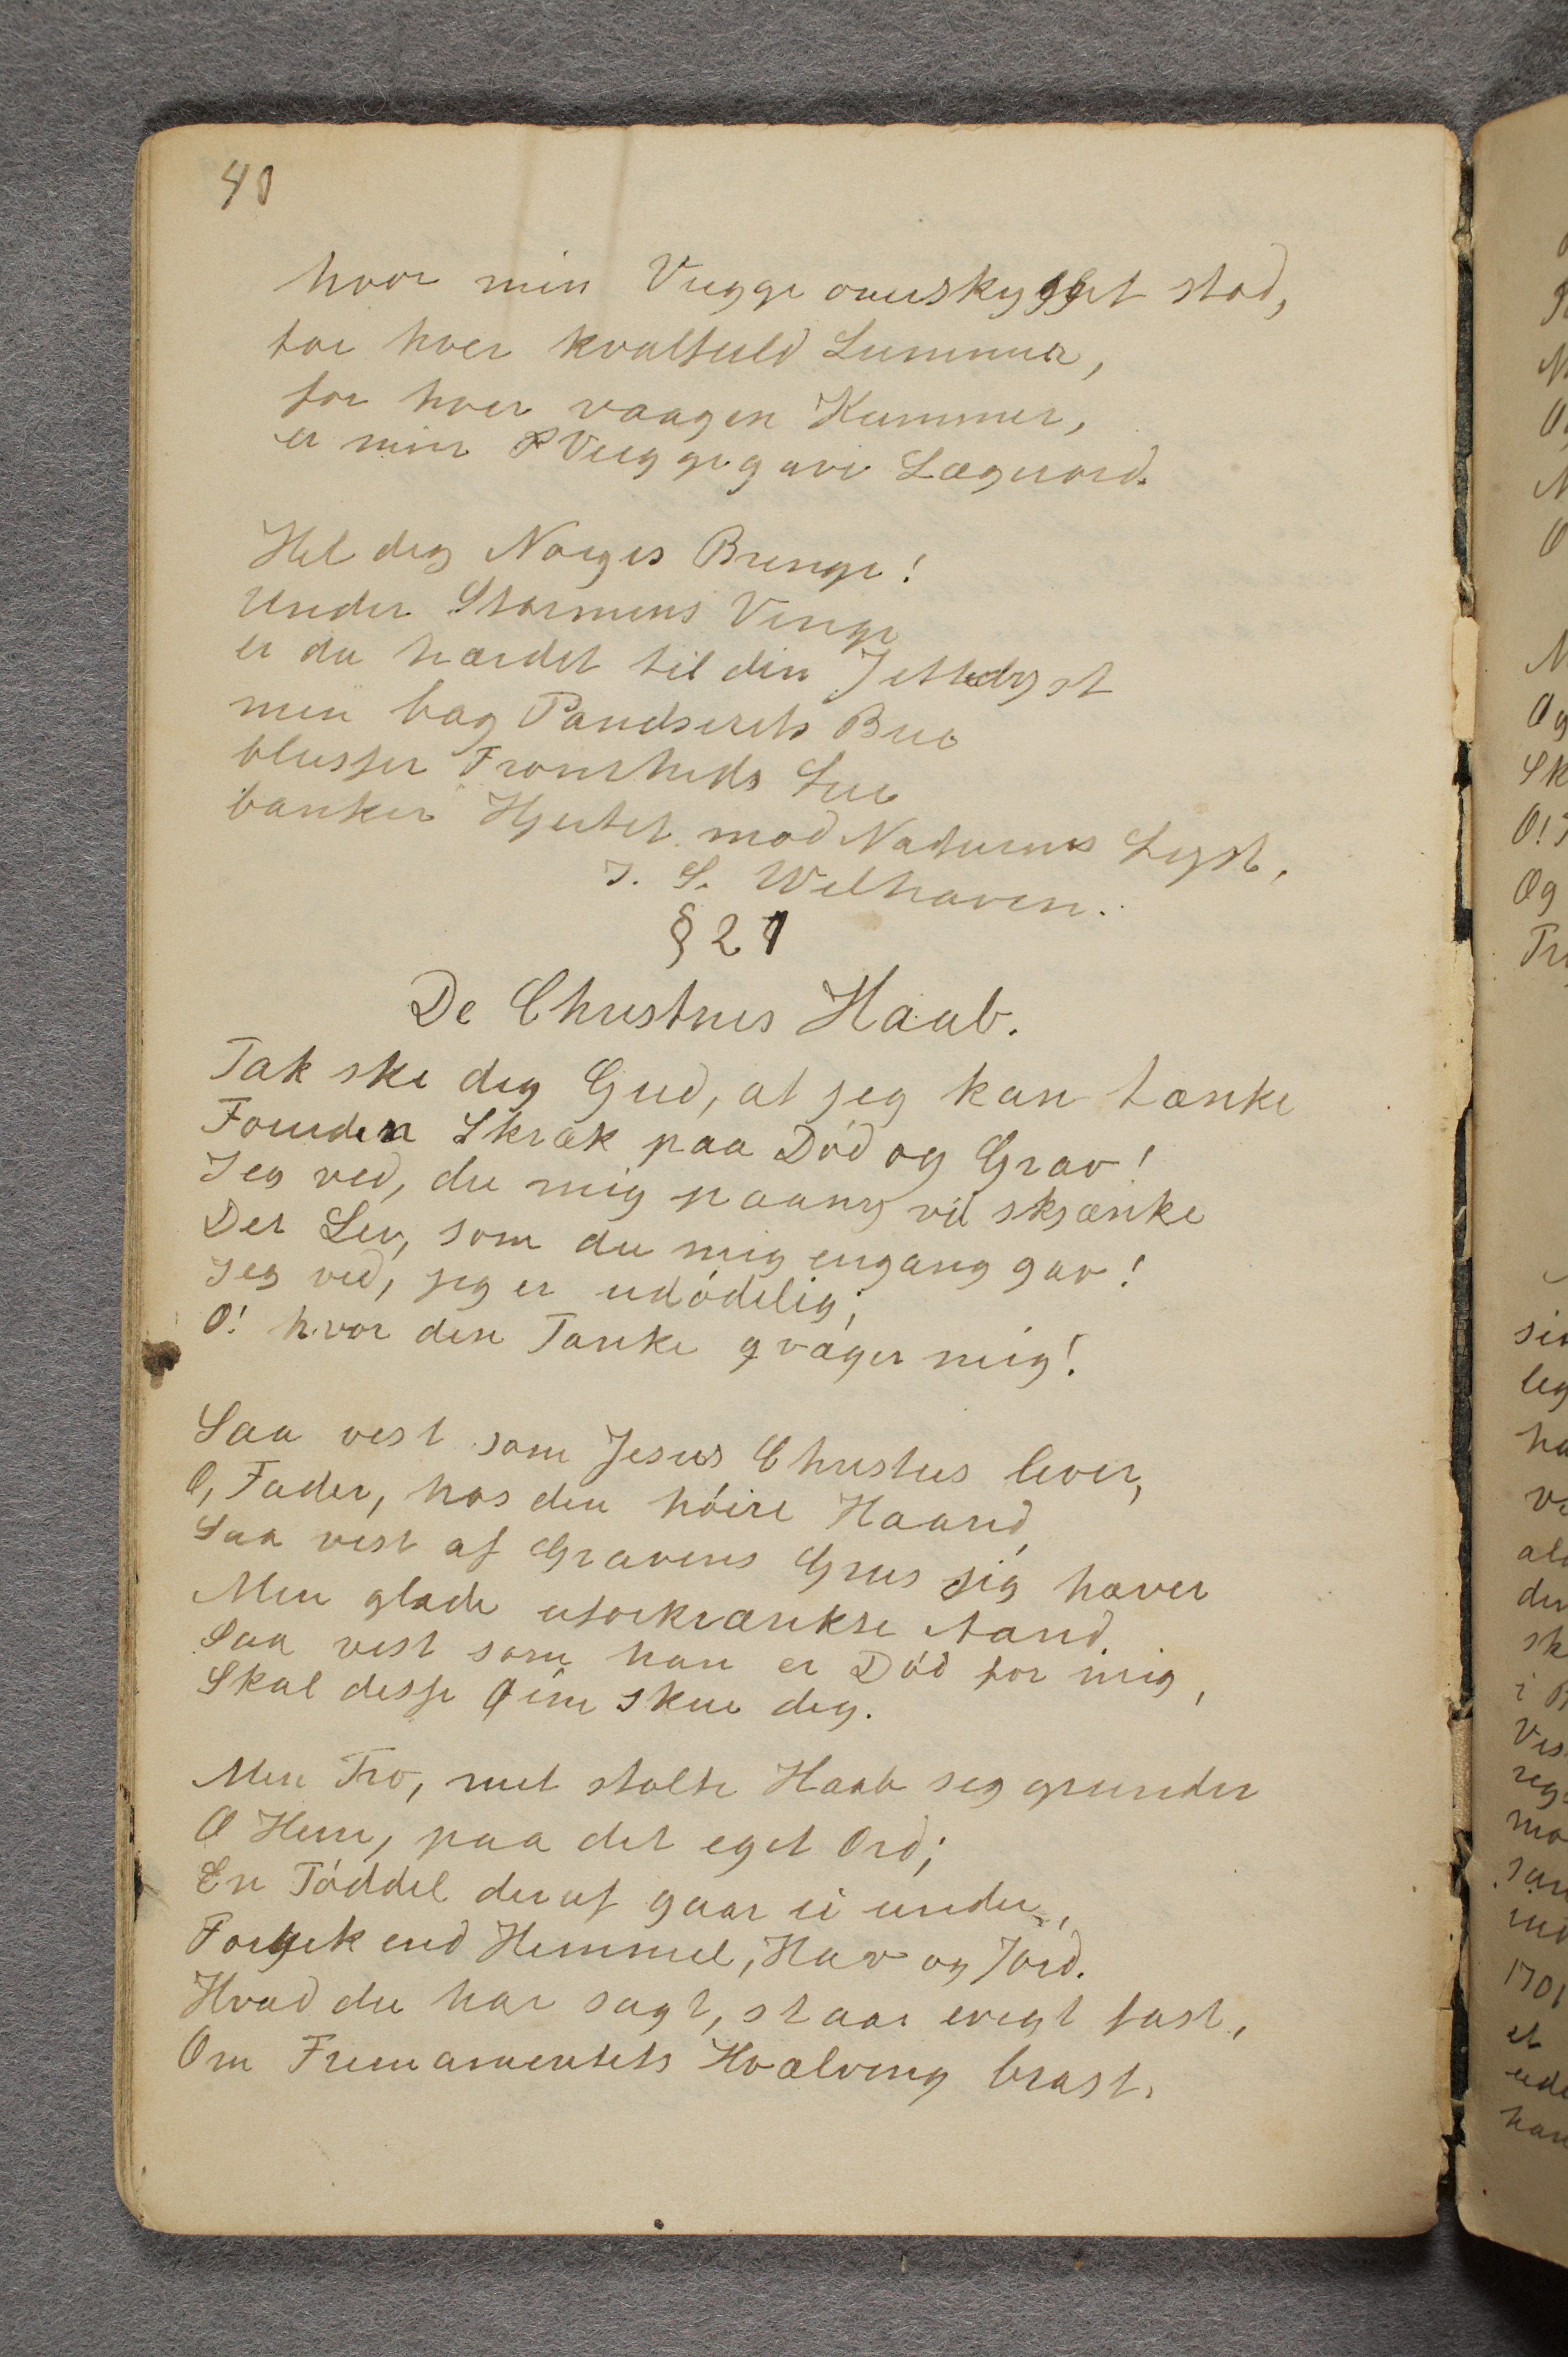 40
hvor min Vugge overskygget stod,
for hver kvalfuld Lummer,
for hver vaagen Kummer,
er min Vuggegave Lægerord.
Hel dig Norges Bringe!
Under Stormens Vinge
er du hærdet til din Jettedyst
men bag Pandserets Bue
blusser Fromheds Lue
banker Hjertet mod Naturens Lyst,
J. S. Welhaven.
§ 21
De Christnes Haab.
Tak ske dig Gud, at jeg kan tænke
Foruden Skræk paa Død og Grav!
Jeg ved, du mig paany vil skjænke
Det Lev, som du mig engang gav!
Jeg ved, jeg er udødelig;
O! hvor den Tanke qvæger mig!
Saa vest som Jesus Christus lever,
O, Fader, hos den høire Haand,
Saa vest af Gravens Grus sig hæver
Min glade uforkrænkse Aand.
Saa vest som han er Død for mig,
Skal disse Øine skue dig.
Min Tro, mit stolte Haab seg grunder
O Herre, paa det eget Ord;
En Tøddel deraf gaar ei under,
Forgik end Himmel, Hav og Jord.
Hvad du har sagt, staar evigt fast,
Om Firmamentets Hvælving brast.